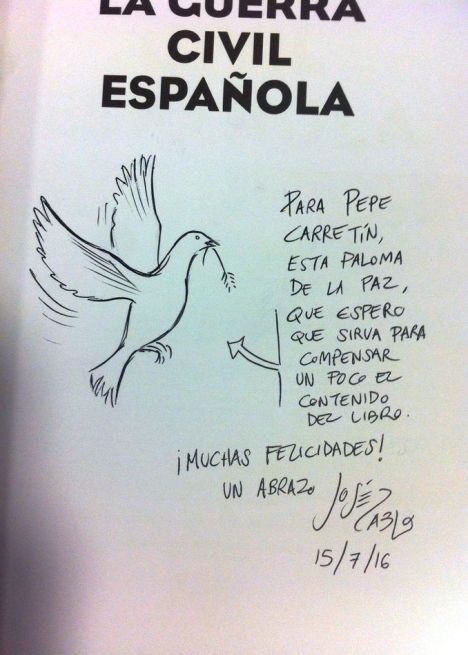 LA GUERRA
CIVIL
ESPAÑOLA
PARA PEPE
CARRETÍN,
ESTA PALOMA
DE LA PAZ,
QUE ESPERO
QUE SIRVA PARA
COMPENSAR
UN POCO EL
CONTENIDO
DEL LIBRO.
¡MUCHAS FELICIDADES!
UN ABRAZO JOSÉ
PABLO
15/7/16